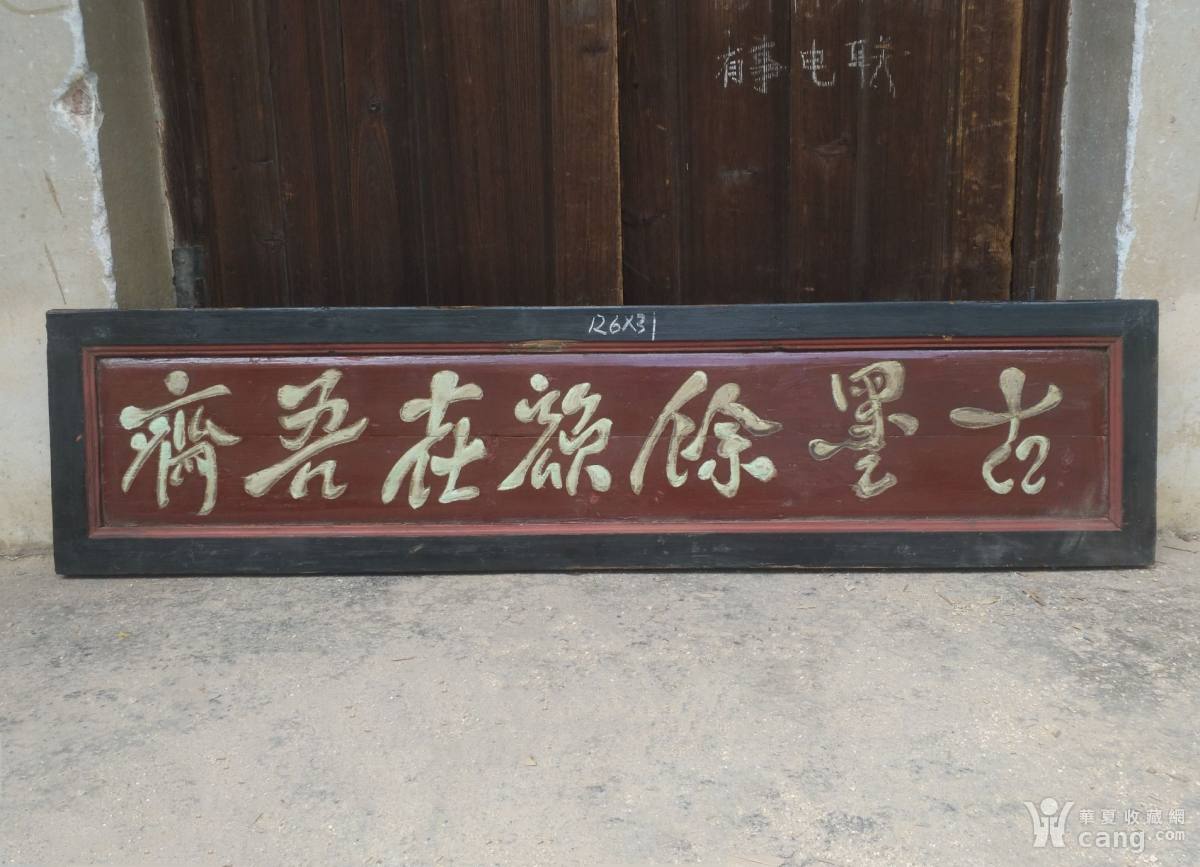 有事电联
126X31
古墨餘在吾齋
華夏收藏網
cang.com